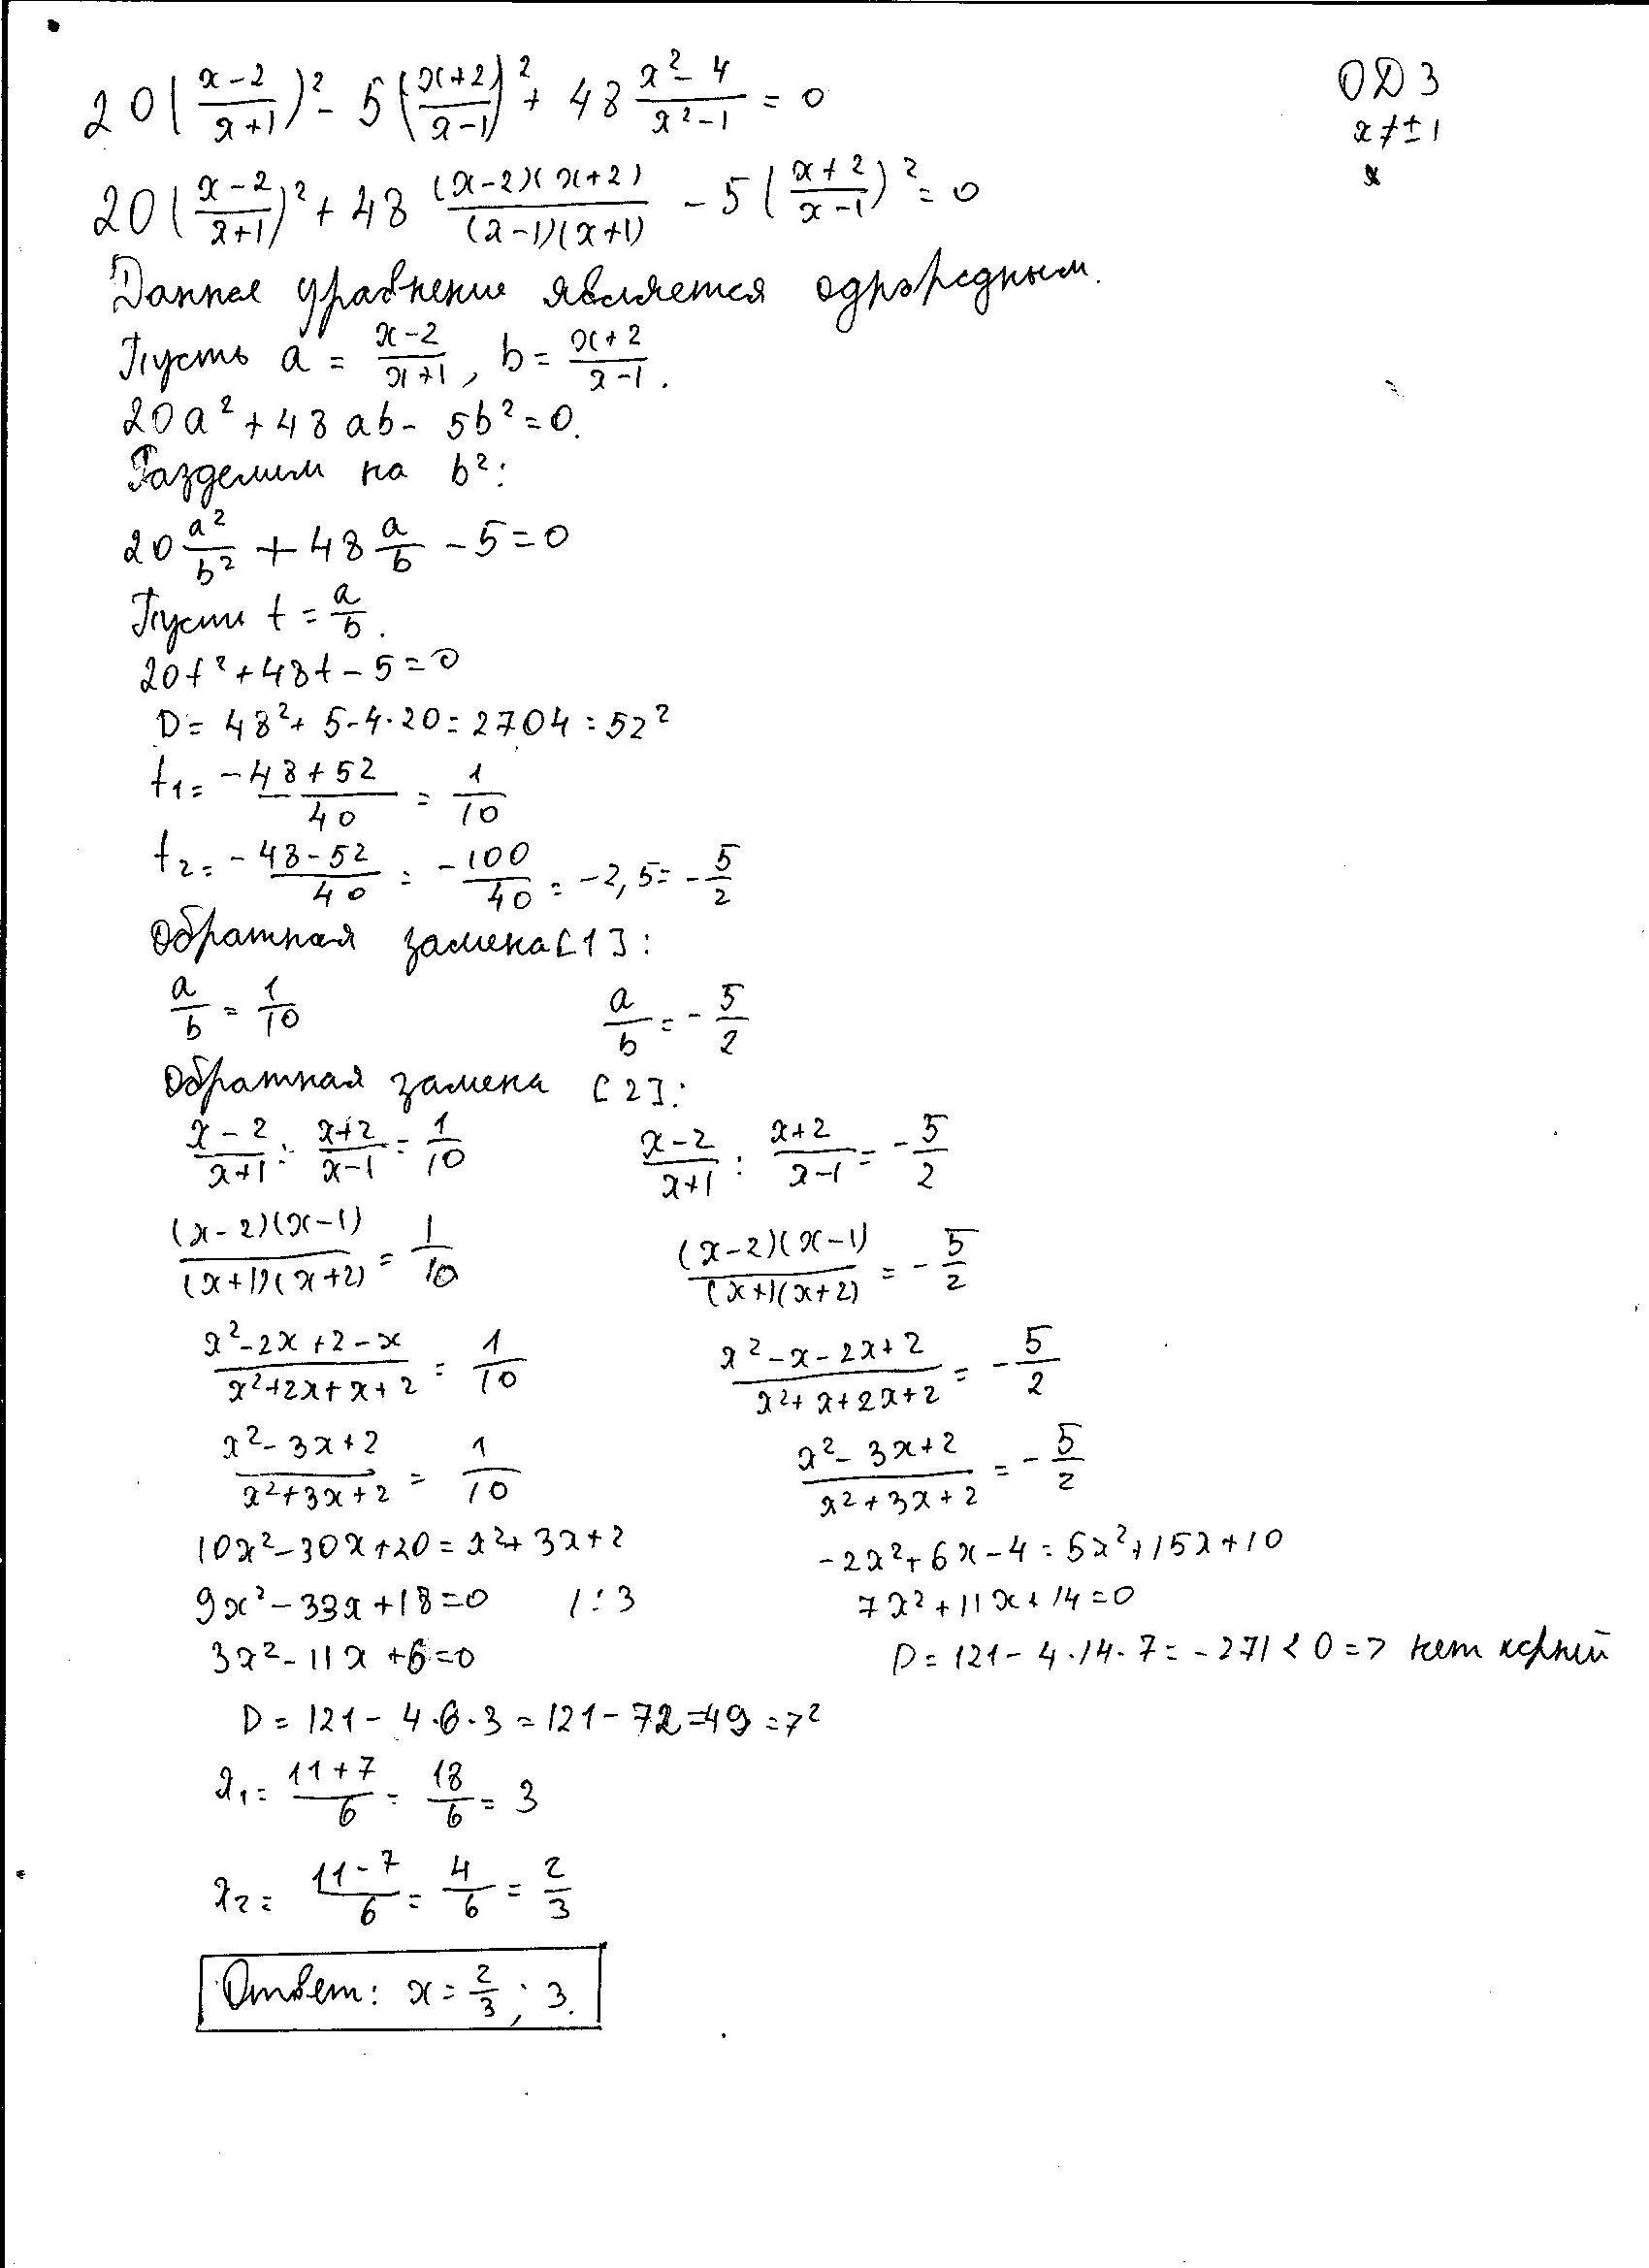 20(x-2/x+1)² - 5(x+2/x-1)² + 48 x²-4/x²-1 = 0
ОДЗ
x≠±1
x
20(x-2/x+1)² + 48 (x-2)(x+2)/(x-1)(x+1) - 5(x+2/x-1)² = 0
Данное уравнение является однородным.
Пусть a = x-2/x+1, b = x+2/x-1.
20a² + 48ab - 5b² = 0.
Разделим на b²:
20 a²/b² + 48 a/b - 5 = 0
Пусть t = a/b.
20t² + 48t - 5 = 0
D = 48² + 5·4·20 = 2704 = 52²
t₁ = -48+52/40 = 1/10
t₂ = -48-52/40 = -100/40 = -2,5 = -5/2
Обратная замена [1]:
a/b = 1/10   a/b = -5/2
Обратная замена [2]:
x-2/x+1 : x+2/x-1 = 1/10   x-2/x+1 : x+2/x-1 = -5/2
(x-2)(x-1)/(x+1)(x+2) = 1/10   (x-2)(x-1)/(x+1)(x+2) = -5/2
x²-2x+2-x/x²+2x+x+2 = 1/10   x²-x-2x+2/x²+x+2x+2 = -5/2
x²-3x+2/x²+3x+2 = 1/10   x²-3x+2/x²+3x+2 = -5/2
10x²-30x+20 = x²+3x+2   -2x²+6x-4 = 5x²+15x+10
9x²-33x+18=0 /:3   7x²+11x+14=0
3x²-11x+6=0   D = 121-4·14·7 = -271 < 0 => нет корней
D = 121-4·6·3 = 121-72 = 49 = 7²
x₁ = 11+7/6 = 18/6 = 3
x₂ = 11-7/6 = 4/6 = 2/3
Ответ: x = 2/3; 3.